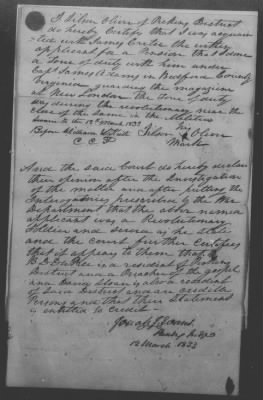 I Tilson Oliver of Pickens District
do hereby Certify that I was acquain
ted with James Carter the within
applicant for a Pension that I done
a tour of duty with him under
Capt James Adams in Bedford County
Virginia guarding the magazine
at New London the tour of duty
was during the revolutionary near the
close of the same in the Militia
Sworn to the 12 March 1833 his
Before William Tilson Oliver
C. C. P. Mark
And the said Court do hereby declare
their opinion after the Investigation
of the matter and after putting the
Interogatories prescribed by the War
Department that the above named
applicant was a Revolutionary
Soldier and served as he states
and the court further certifies
that it appears to them that
B. D. is a resident of
District and a Preacher of the gospel
and David Sloan is also a resident
of said District and are credible
Persons and that their Statement
is entitled to credit
12 March 1833